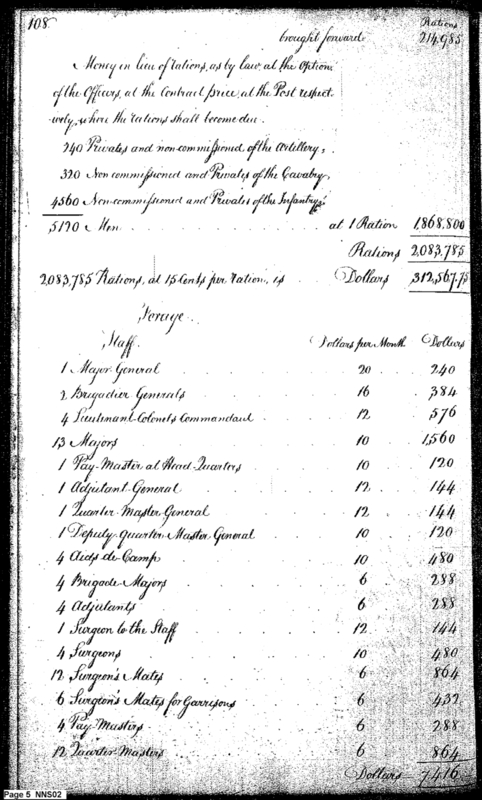 108
Rations
brought forward 214,985
Money in lieu of rations, as by law, at the Option
of the Officers, at the Contract price, at the Post respect
ively, where the rations shall become due.
240 Privates and non commissioned of the Artillery,
320 Non commissioned and Privates of the Cavalry,
4560 Non-commissioned and Privates of the Infantry,
5120 Men at 1 Ration 1,868,800
Rations 2,083,785
2,083,785 Rations, at 15 Cents per ration, is Dollars 312,567.75
Forage.
Staff. Dollars per Month Dollars
1 Major General 20 240
2 Brigadier Generals 16 384
4 Lieutenant-Colonels Commandant 12 576
13 Majors 10 1,560
1 Pay-Master at Head Quarters 10 120
1 Adjutant General 12 144
1 Quarter-Master General 12 144
1 Deputy-quarter-Master General 10 120
4 Aids-de-Camp 10 480
4 Brigade Majors 6 288
4 Adjutants 6 288
1 Surgeon to the Staff 12 144
4 Surgeons 10 480
12 Surgeon's Mates 6 864
6 Surgeon's Mates for Garrisons 6 432
4 Pay-Masters 6 288
12 Quarter-Masters 6 864
Dollars 7,416
Page 5 NNS02